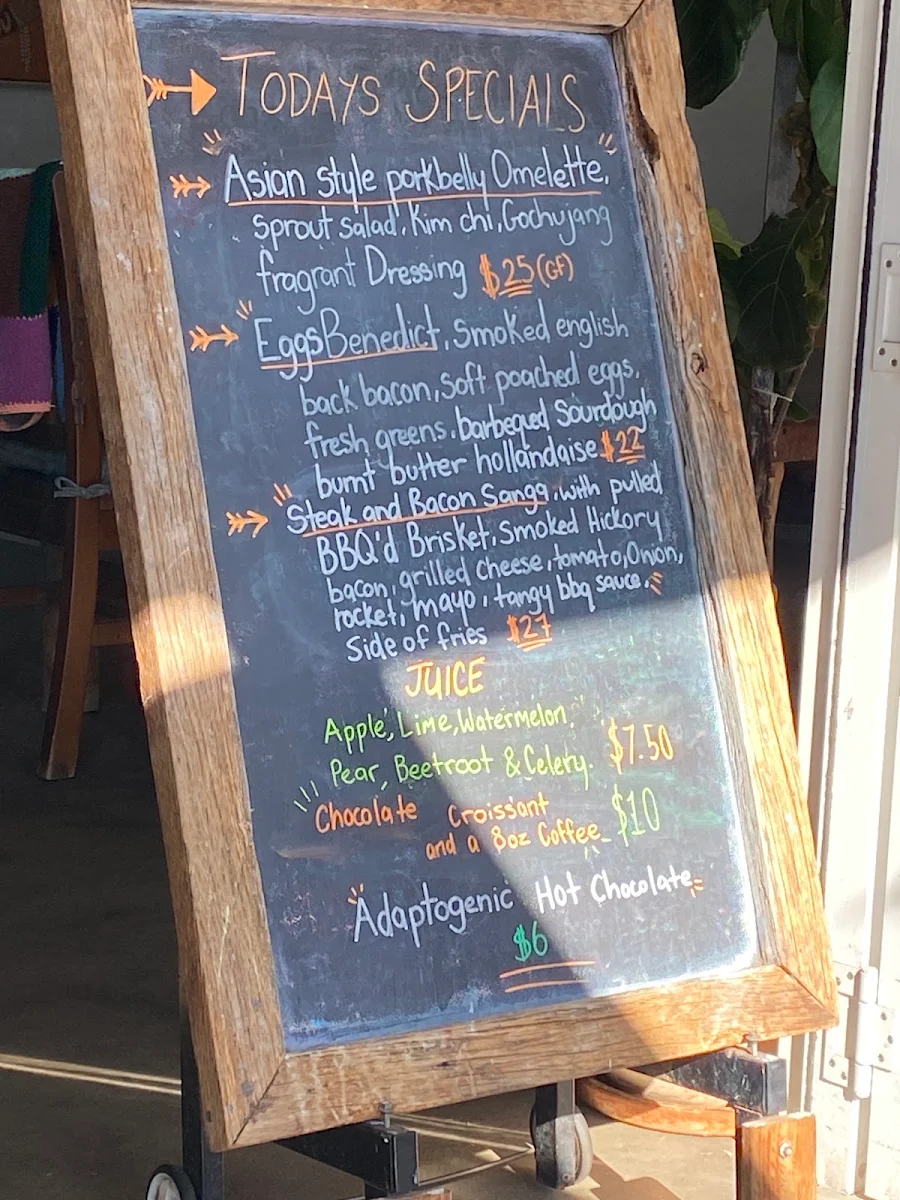 TODAYS SPECIALS
Asian style porkbelly Omelette,
sprout salad, Kim chi, Gochujang
fragrant Dressing $25 (GF)
Eggs Benedict, Smoked english
back bacon, soft poached eggs,
fresh greens, barbequed Sourdough
burnt butter hollandaise $22
Steak and Bacon Sanga, with pulled
BBQ'd Brisket, Smoked Hickory
bacon, grilled cheese, tomato, Onion,
rocket, mayo, tangy bbq sauce.
Side of fries $27
JUICE
Apple, Lime, Watermelon,
Pear, Beetroot & Celery. $7.50
Chocolate Croissant
and a 8oz Coffee $10
Adaptogenic Hot Chocolate
$6